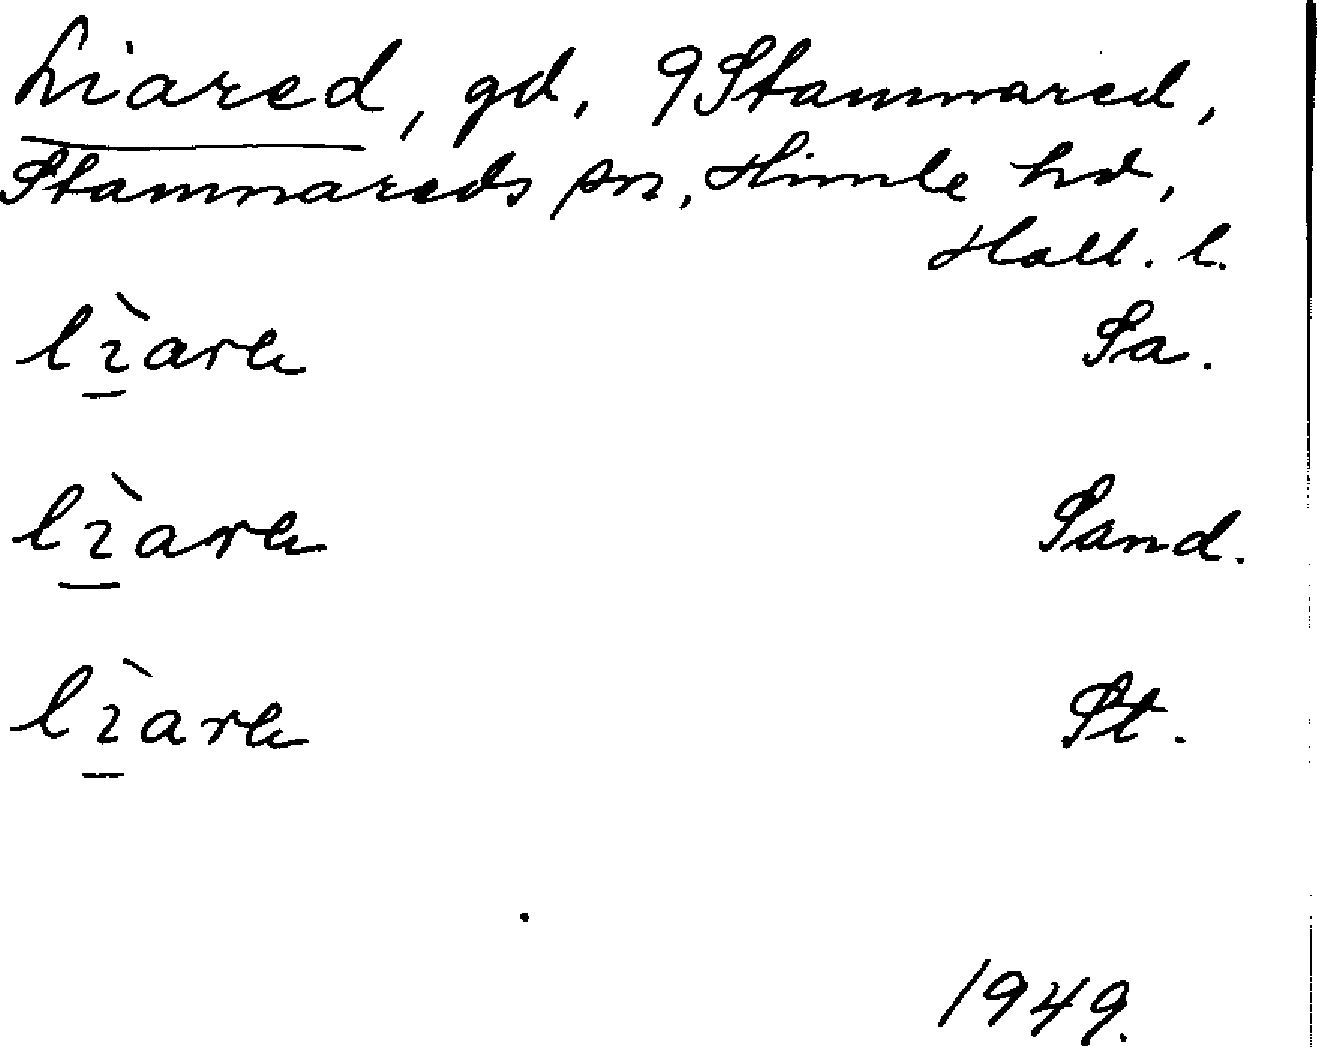 Liared, gd, 9 Stamnared,
Stamnareds sn, Himle hd,
Hall. l.
lì̱are Sa.
lì̱are Sand.
lì̱are St.
1949.